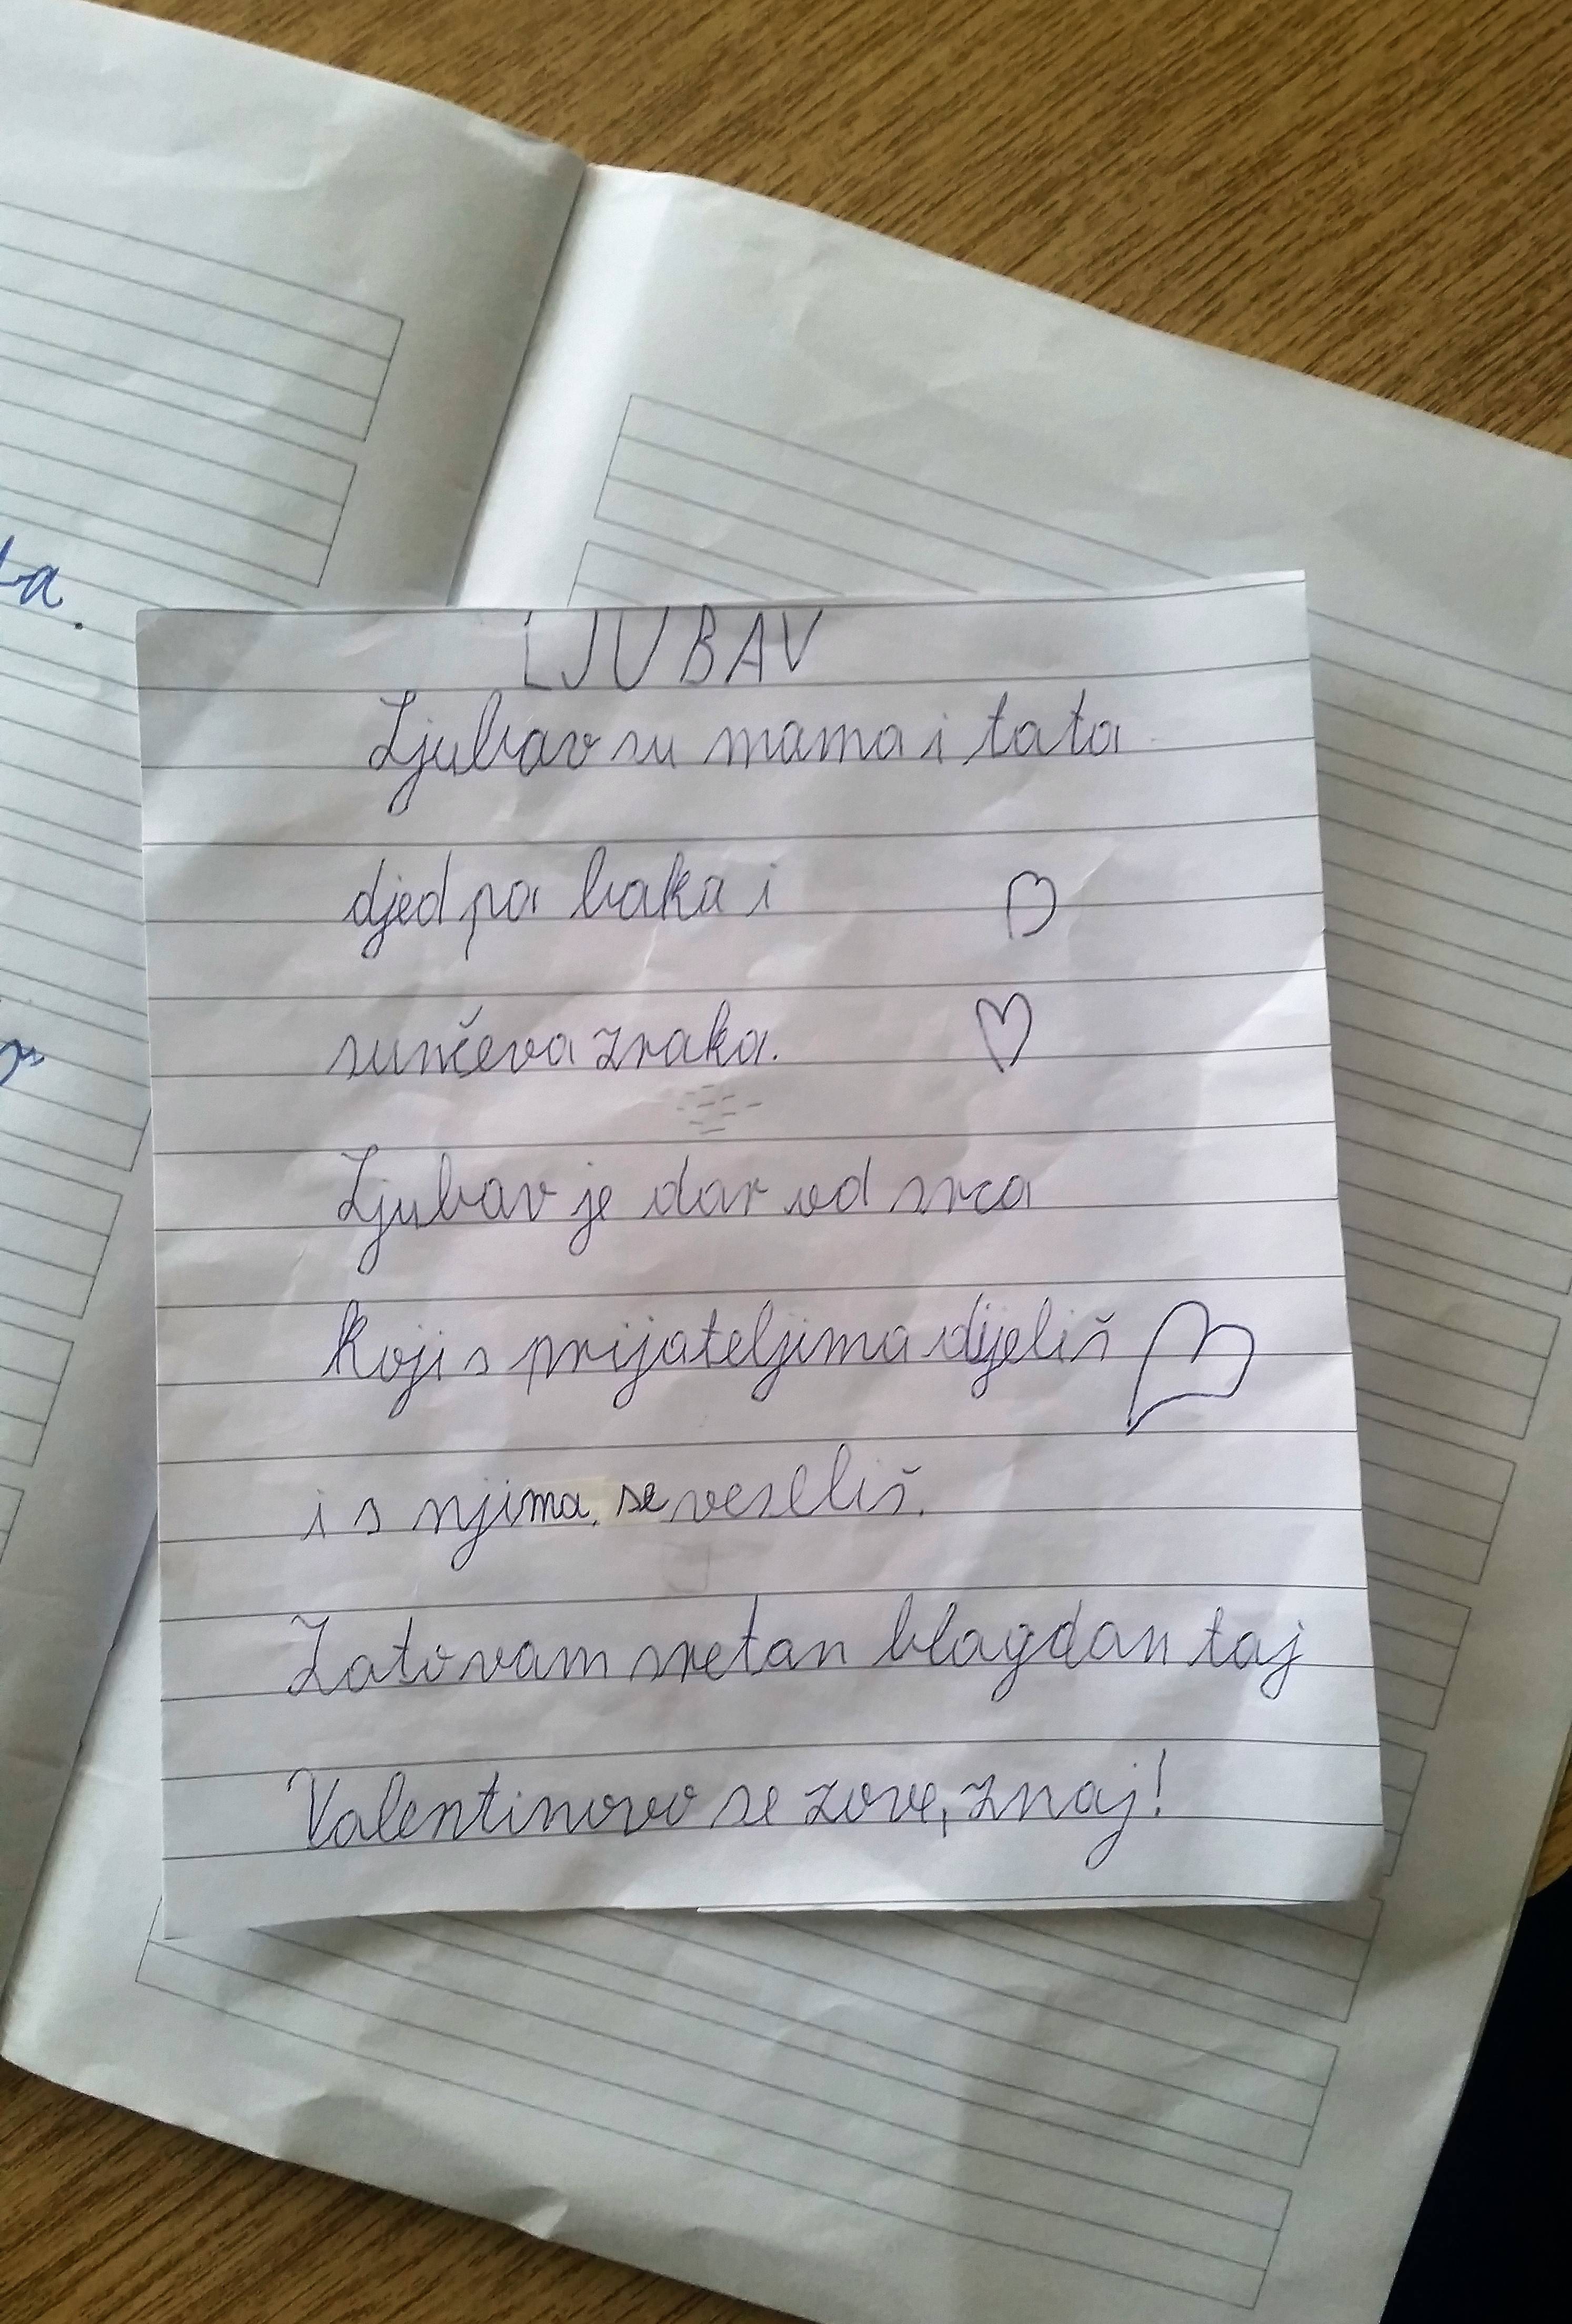 LJUBAV
Ljubav su mama i tata
djed pa baka i
sunčeva zraka.
Ljubav je dar od srca
koji s prijateljima dijeliš
i s njima se veseliš.
Zato vam sretan blagdan taj
Valentinovo se zove, znaj!